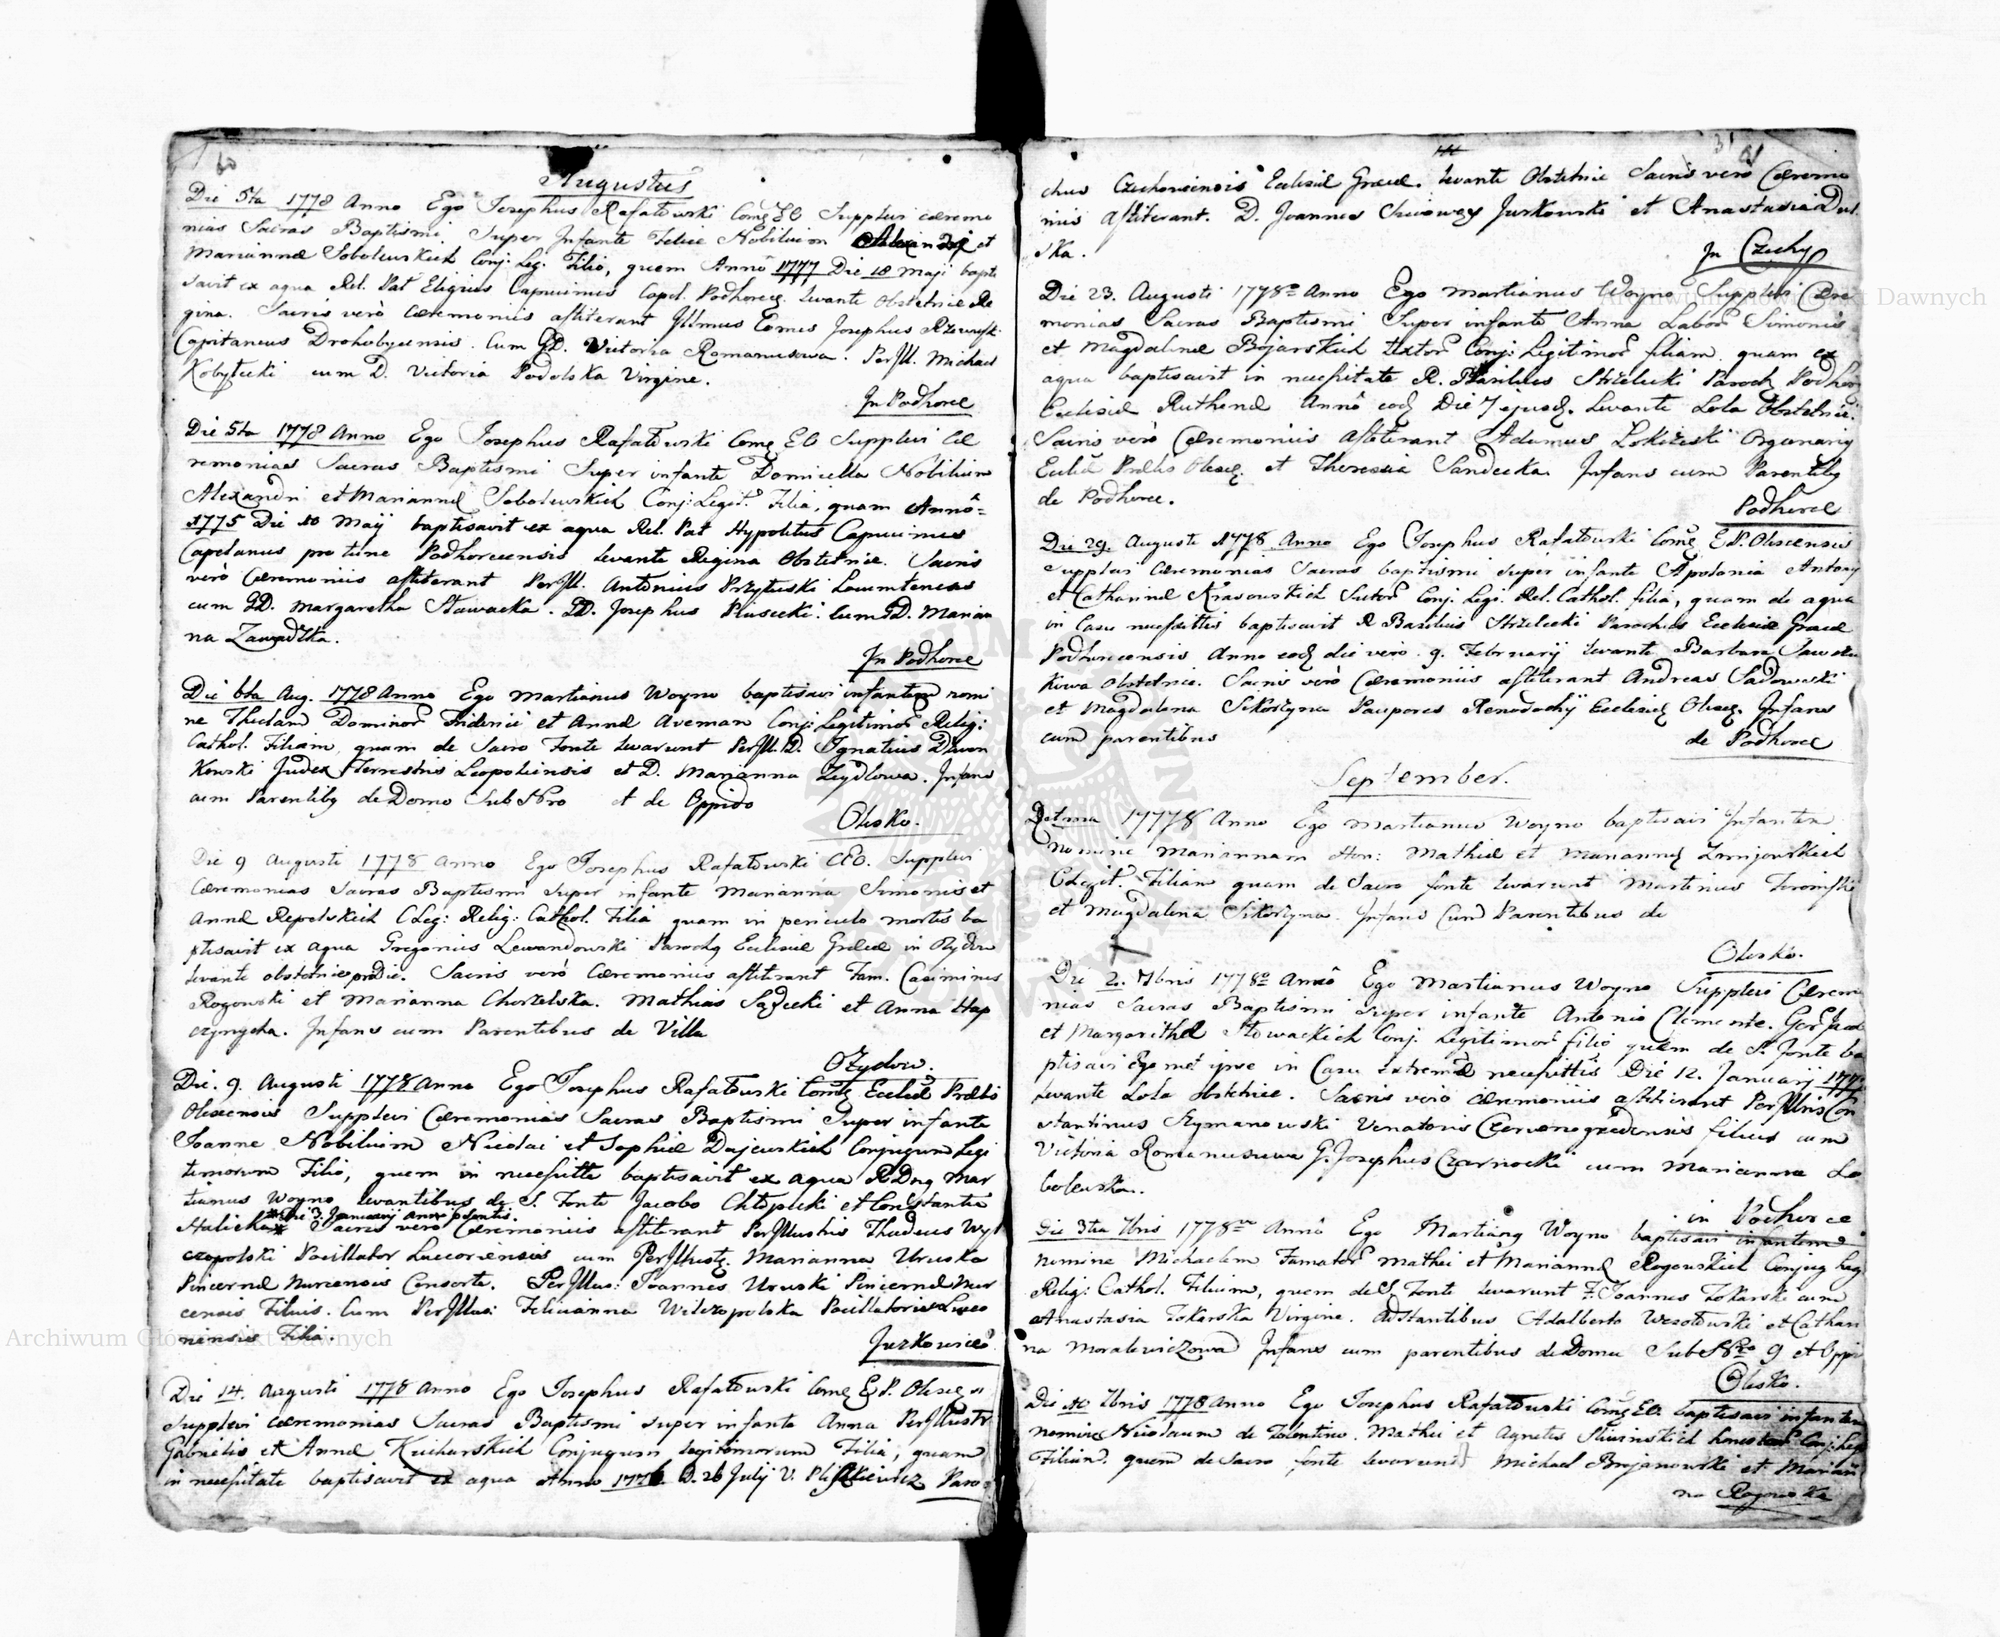 60
Augustus
Die 5ta 1778 Anno Ego Josephus Rafałowski Comq EO Supplevi cæremo
nias Sacras Baptismi Super Infante Felice Nobilium Alexandri et
Mariannæ Sobolewskich Conj: Leg: Filio, quem Annô 1777 Die 18 Maji bapti
savit ex aqua Rel. Pat Eligius Capucinus Capel. Podhorec. levante Obstetrice Re
gina. Sacris verò Cæremoniis astiterant Jllmus Comes Josephus Rzewusk.
Capitaneus Drohobycensis. Cum GD. Victoria Romanusowa. PerJll. Michael
Kobyłecki cum D. Victoria Podolska Virgine.
Jn Podhorce
Die 5ta 1778 Anno Ego Josephus Rafałowski Comq EO Supplevi Cæ
remonias Sacras Baptismi Super infante Domicella Nobilium
Alexandri et Mariannæ Sobolewskich Conj: Legit: Filia, quam Annô
1775 Die 10 Maij baptisavit ex aqua Rel. Pat Hypolitus Capucinus
Capelanus pro tunc Podhorecensis levante Regina Obstetrice. Sacris
verò Cæremoniis astiterant PerJll. Antonius Przyłuski Locumtenens
cum GD. Margaretha Sławacka. GD. Josephus Piasecki. Cum GD. Marian
na Zawadzka.
Jn Podhorce
Die 6ta Aug. 1778 Anno Ego Martianus Woyno baptisavi infantem nomi
ne Theclam Dominor Fridericæ et Annæ Aveman Conj: Legitimor Relig:
Cathol. Filiam, quam de Sacro Fonte levarunt PerJll. D. Jgnatius Dwon
Kowski Judex Terrestris Leopoliensis et D. Marianna Zeydlowa. Jnfans
cum Parentibq de Domo Sub Nro et de Oppido
Olesko.
Die 9 Augusti 1778 Anno Ego Josephus Rafałowski CEO. Supplevi
Cæremonias Sacras Baptismi Super infante Marianna Simonis et
Annæ Repelskich CLeg: Relig: Cathol. Filia quam in periculo mortis ba
ptisavit ex aqua Gregorius Lewandowski Parochq Ecclesiæ Græcæ in Ożydow
levante obstetrice præDie. Sacris verò Cæremoniis astiterant Fam. Casimirus
Rogowski et Marianna Chorzelska. Mathias Sądecki et Anna Hap
czynycha. Jnfans cum Parentibus de Villa
Ożydow.
Die. 9. Augusti 1778 Anno Ego Josephus Rafałowski Comq Eccleæ Prælis
Olescensis Supplevi Cæremonias Sacras Baptismi Super infante
Joanne Nobilium Nicolai et Sophiæ Dajewskich Conjugum Legi
timorum Filio, quem in necessitte baptisavit ex aqua RDnq Mar
tianus Woyno levantibus de S. Fonte Jacobo Chłopicki et Constantia
* Die 3. Januarij anni præsentis.
Halicka * Sacris verò Cæremoniis astiterant PerJllustris Thadeus Wyl
czopolski Pocillator Luceoriensis cum PerJllustq Marianna Uruska
Pincernæ Nurcensis Consorte. PerJllus: Joannes Uruski Pincernæ Nur
censis Filius. Cum PerJllus: Feliciana Wilczopolska Pocillatoris Luceo
riensis Filia.
Jurkowice
Die 14. Augusti 1778 Anno Ego Josephus Rafałowski Comq E P. Olescensi
Supplevi Cæremonias Sacras Baptismi Super infante Anna PerJllustr
Gabrielis et Annæ Kucharskich Conjugum legitimorum Filia, quam
in necessitate baptisavit ex aqua Anno 1776 D. 26 Julij V. Paro
31
61
chus Czechowcensis Ecclesiæ Græcæ. levante Obstetrice Sacris verò Cæremo
niis astiterant. D. Joannes Jurkowski et Anastasia Dul
ska.
Jn Czechy
Die 23. Augusti 1778o Anno Ego Martianus Woyno Supplevi Cære
monias Sacras Baptismi Super infante Anna Labor Simonis
et Magdalenæ Bojarskich textor Conj: Legitimor filiam quam ex
aqua baptisavit in necessitate R. Basilius Strzelecki Paroch Podhor
Ecclesiæ Ruthenæ Annô eod Die 7 ejusd. Levante Lola Obstetrice.
Sacris verò Cæremoniis Astiterant Adamus Zokirski Organariq
Ecclæ Prælis Olesc. et Theressia Sandecka. Jnfans cum Parentibq
de Podhorce.
Podhorce
Die 29. Augusti 1778 Anno Ego Josephus Rafałowski Comq E P. Olescensis
Supplevi Cæremonias Sacras baptismi Super infante Apolonia Antony
et Catharinæ Krasowskich Sutor Conj. Legi. Rel. Cathol. filia, quam de aqua
in Casu necessittis baptisavit R Basilius Strzelecki Parochus Ecclesiæ Græcæ
Podhorecensis Anno eod die verò 9. Februarij levante Barbara Sawczu
kowa Obstetrice. Sacris verò Cæremoniis astiterant Andreas Sadowski
et Magdalena Sikorzyna Pauperes Xenodochij Ecclesiæ Olesc. Jnfans
cum parentibus
de Podhorce
September.
Die 1ma 1778 Anno Ego Martianus Woyno baptisavi Jnfantem
nomine Mariannam Hon: Mathiæ et Mariannæ Zmijowskich
CLegit. Filiam quam de Sacro fonte levarunt Martinus
et Magdalena Sikorzyna. Jnfans Cum Parentibus de
Olesko.
Die 2. 7bris 1778o Annô Ego Martianus Woyno Supplevi Cæremo
nias Sacras Baptismi Super infante Antonio Clemente.
et Margarithæ Słowackich Conj. Legitimor filio quem de S. Fonte ba
ptisavi egomet ipse in Casu extremæ necessittis Die 12. Januarij
Levante Lola Obstetrice. Sacris verò Cæremoniis astiterant PerJllris Con
stantinus Szymanowski Venatoris Czerwonogrodensis filius cum
Victoria Romanusowa G. Josephus Czarnocki cum Marianna So
bolewska.
in Podhorce
Die 3tia 7bris 1778vo Annô Ego Martianq Woyno baptisavi infantem
nomine Michaelem Famator Mathei et Mariannæ Rogowskich Conjug Leg
Relig: Cathol. Filium, quem de S. Fonte levarunt F: Joannes Tokarski cum
Anastasia Tokarska Virgine. Adstantibus Adalberto Wesołowski et Cathari
na Moralewiczowa Jnfans cum parentibus de Domu Sub Nro 9 et Oppi
Olesko.
Die 10 7bris 1778 Anno Ego Josephus Rafałowski Comq EO. baptisavi infantem
nomine Nicolaum de Tolentino. Mathei et Agnetis Śliwinskich honestor Conj: Leg
Filium. quem de Sacro fonte levarunt Michael Bojanowski et Marian
na Rogowska
Archiwum Główne Akt Dawnych
Archiwum Główne Akt Dawnych